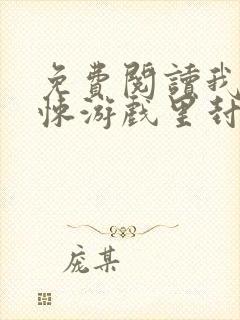 免費閱讀我
悚游戲里封
龐某